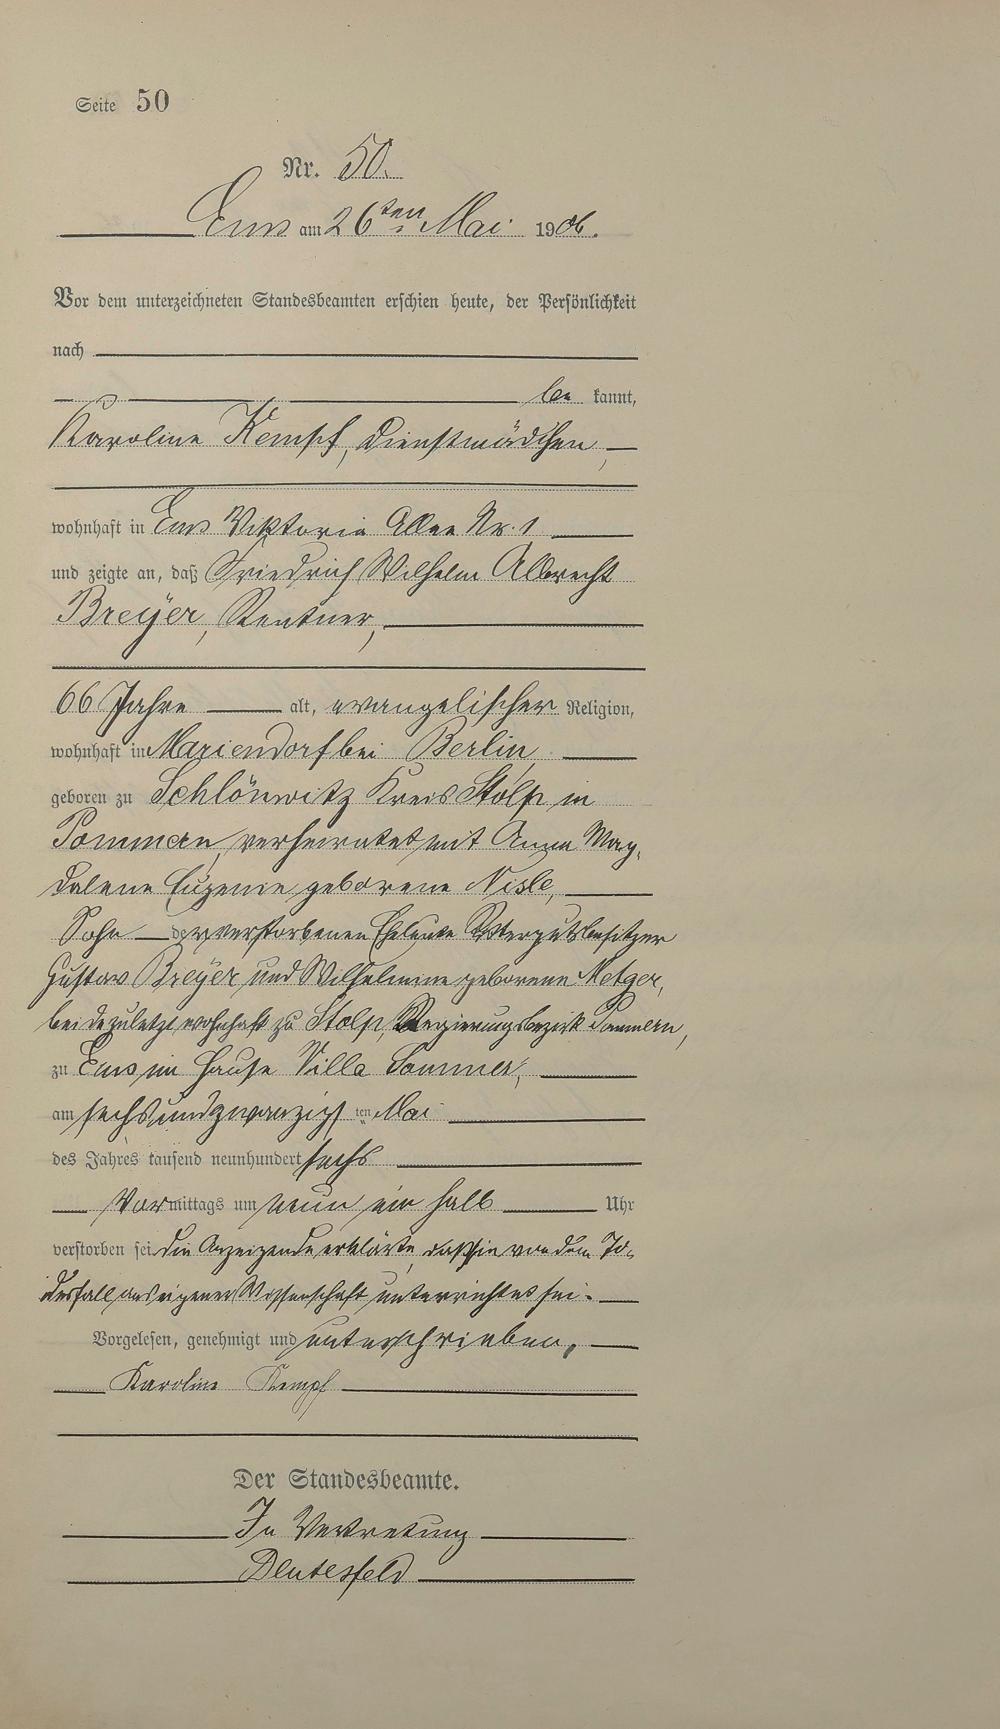 Seite 50
Nr. 50.
Ems am 26ten Mai 1906.
Vor dem unterzeichneten Standesbeamten erschien heute, der Persönlichkeit
nach
be kannt,
Karoline Kempf, Dienstmädchen
wohnhaft in Ems Viktoria Allee Nr. 1
und zeigte an, daß Friedrich Wilhelm Albrecht
Breÿer, Rentner,
66 Jahre alt, evangelischer Religion,
wohnhaft in Mariendorf bei Berlin,
geboren zu Schlönwitz Kreis Stolp in
Pommern, verheiratet mit Anna Mag-
dalena Eugenie geborene Nisle,
Sohn der verstorbenen Eheleute Rittergutsbesitzer
Gustav Breÿer und Wilhelmine geborene Metger,
beide zuletzt wohnhaft zu Stolp, Regierungsbezirk Pommern,
zu Ems im Hause Villa Sommer,
am sechsundzwanzigsten Mai
des Jahres tausend neunhundert sechs
Vormittags um neun ein halb Uhr
verstorben sei. Die Anzeigende erklärte, daß sie von dem To-
desfall aus eigener Wissenschaft unterrichtet sei.
Vorgelesen, genehmigt und unterschrieben,
Karoline Kempf
Der Standesbeamte.
In Vertretung